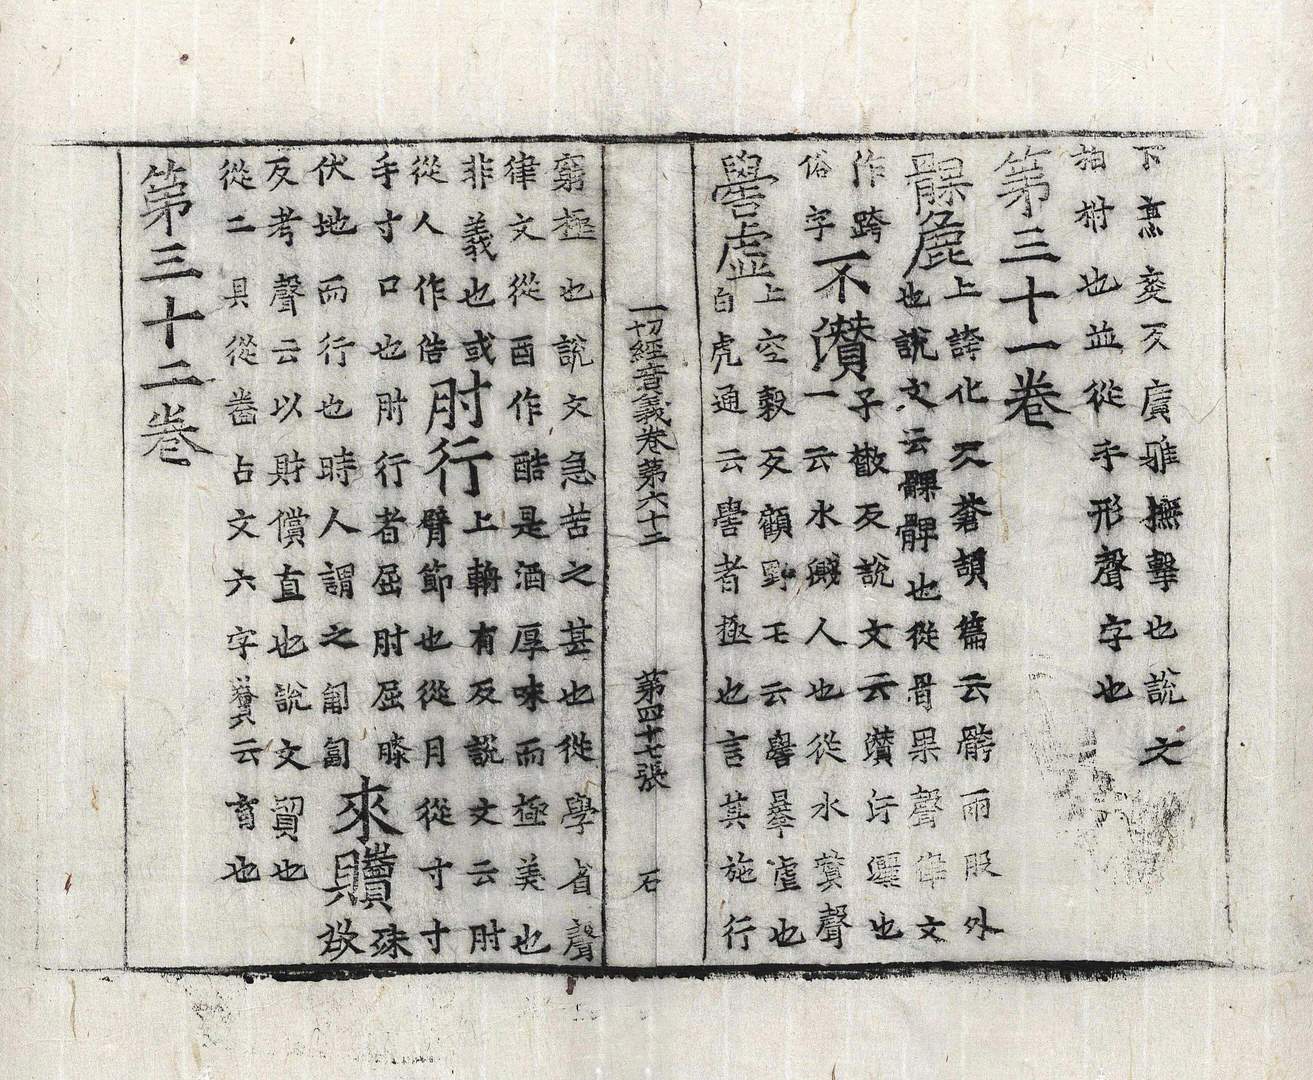 下烹㚣反廣雅撫擊也說文
拍拊也並從手形聲字也
第三十一卷
髁麄
上誇化反蒼頡篇云髂兩股外
也說文云髁髀也從骨果聲律文
作跨
俗字
不灒
子散反說文云灒汙灑也
一云水濺人也從水贊聲
嚳虛
上空穀反顧野王云嚳暴虐也
白虎通云嚳者極也言其施行
一切經音義卷第六十二 第四十七張 石
窮極也說文急苦之甚也從學省聲
律文從酉作酷是酒厚味而極美也
非義也或
從人作俈
肘行
上輈有反說文云肘
臂節也從月從寸寸
手寸口也肘行者屈肘屈膝
伏地而行也時人謂之匍匐
來贖
殊
反考聲云以財償直也說文貿也
從二具從齒占文六字云育也
第三十二卷